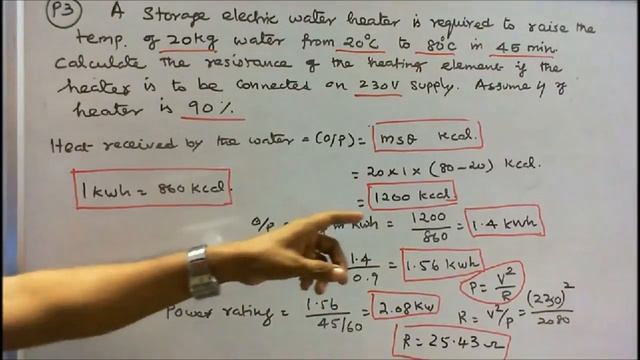 P3) A Storage electric water heater is required to raise the
temp. of 20kg water from 20°C to 80°C in 45 min.
Calculate the resistance of the heating element if the
heater is to be connected on 230V supply. Assume η of
heater is 90%.
Heat received by the water = (O/P) = msθ kcal.
= 20×1×(80-20) kcal.
1 kwh = 860 kcal.
= 1200 kcal
O/P = kwh = 1200/860 = 1.4 kwh
1.4/0.9 = 1.56 kwh
P = V²/R
Power rating = 1.56/45/60 = 2.08kw
R = V²/P = (230)²/2080
R = 25.43 Ω